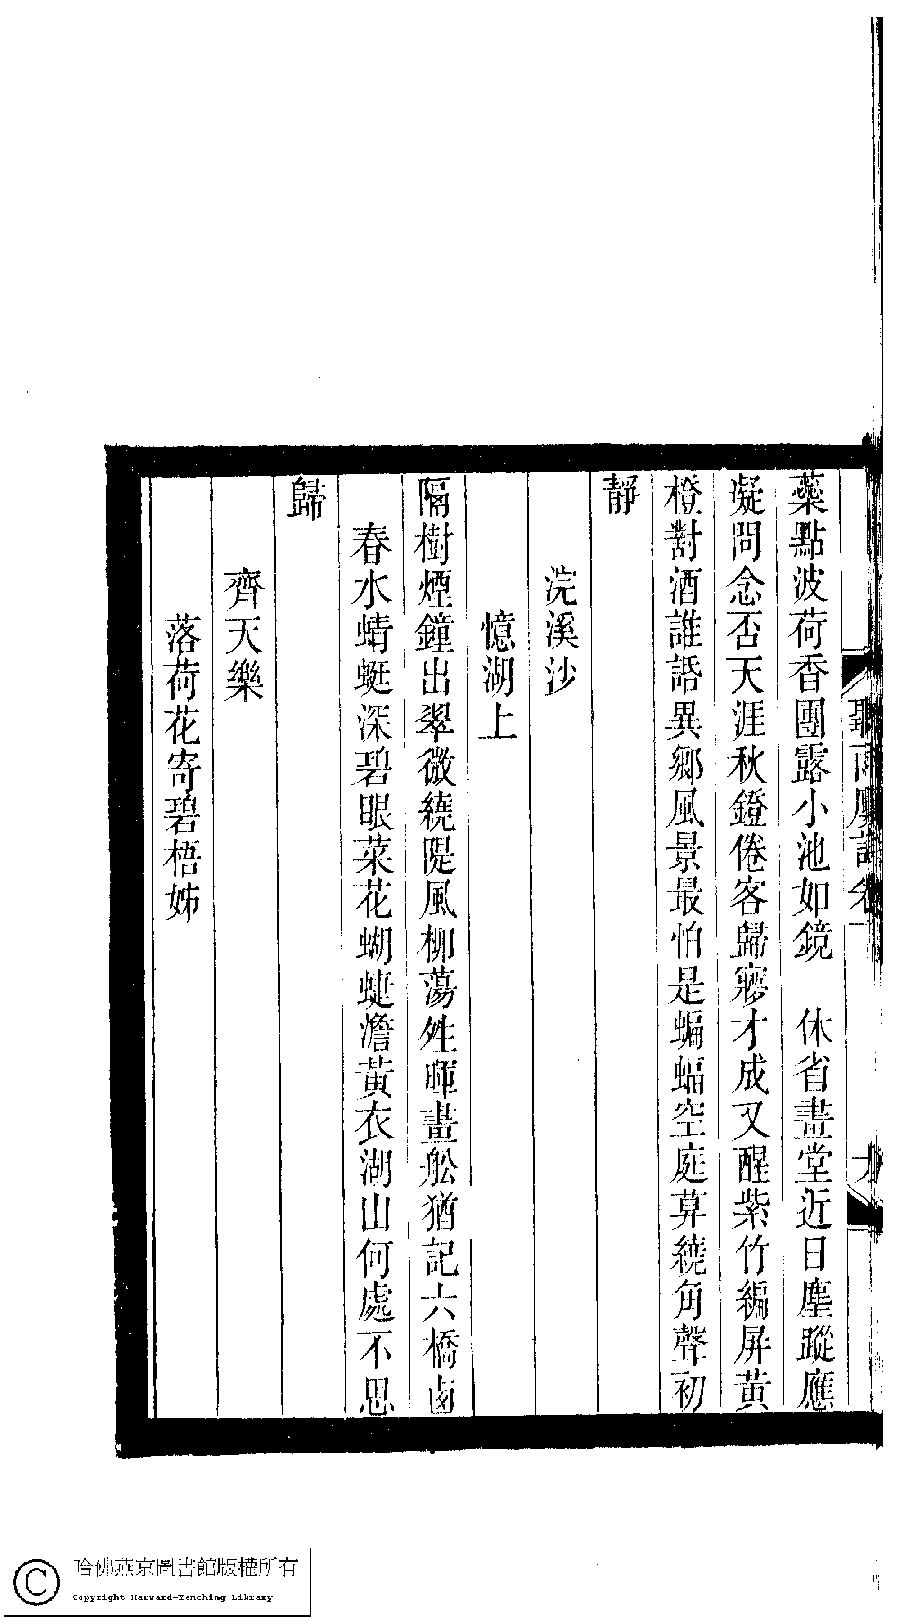 藥點波荷香團露小池如鏡　休省畫堂近日塵蹤應
凝問念否天涯秋鐙倦客歸寢才成又醒紫竹編屏黃
橙對酒誰話異鄉風景最怕是蝙蝠空庭草繞角聲初
靜
浣溪沙
憶湖上
隔樹煙鐘出翠微繞隄風柳蕩斜暉畫舩猶記六橋西
春水蜻蜓深碧眼菜花蝴蜨澹黃衣湖山何處不思
歸
齊天樂
落荷花寄碧梧姊
哈佛燕京圖書館版權所有
Copyright Harvard-Yenching Library